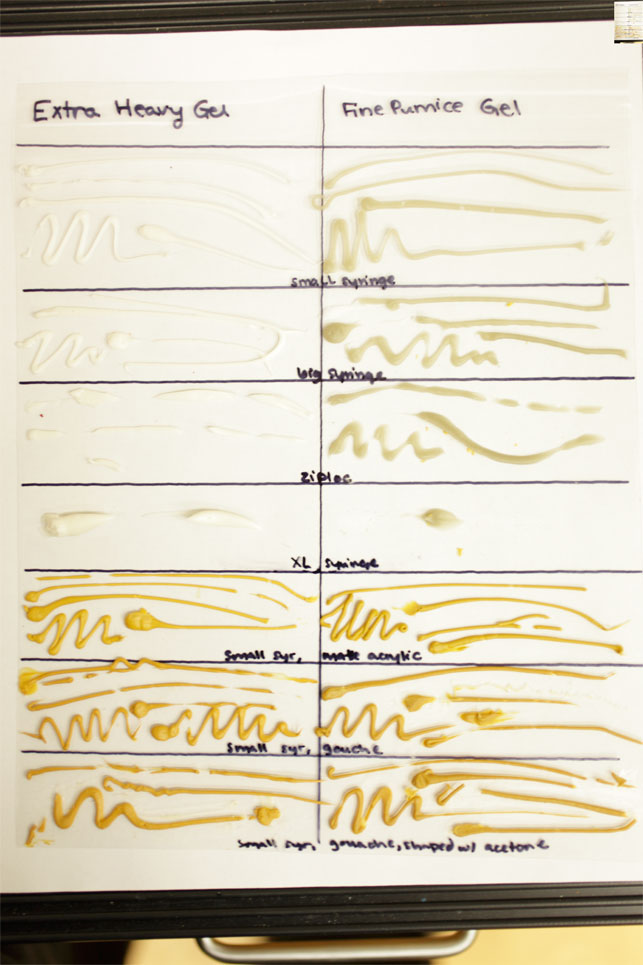 Extra Heavy Gel
Fine Pumice Gel
small syringe
big syringe
ziploc
XL syringe
small syr, matte acrylic
small syr, gouache
small syr, gouache, shaped w/ acetone